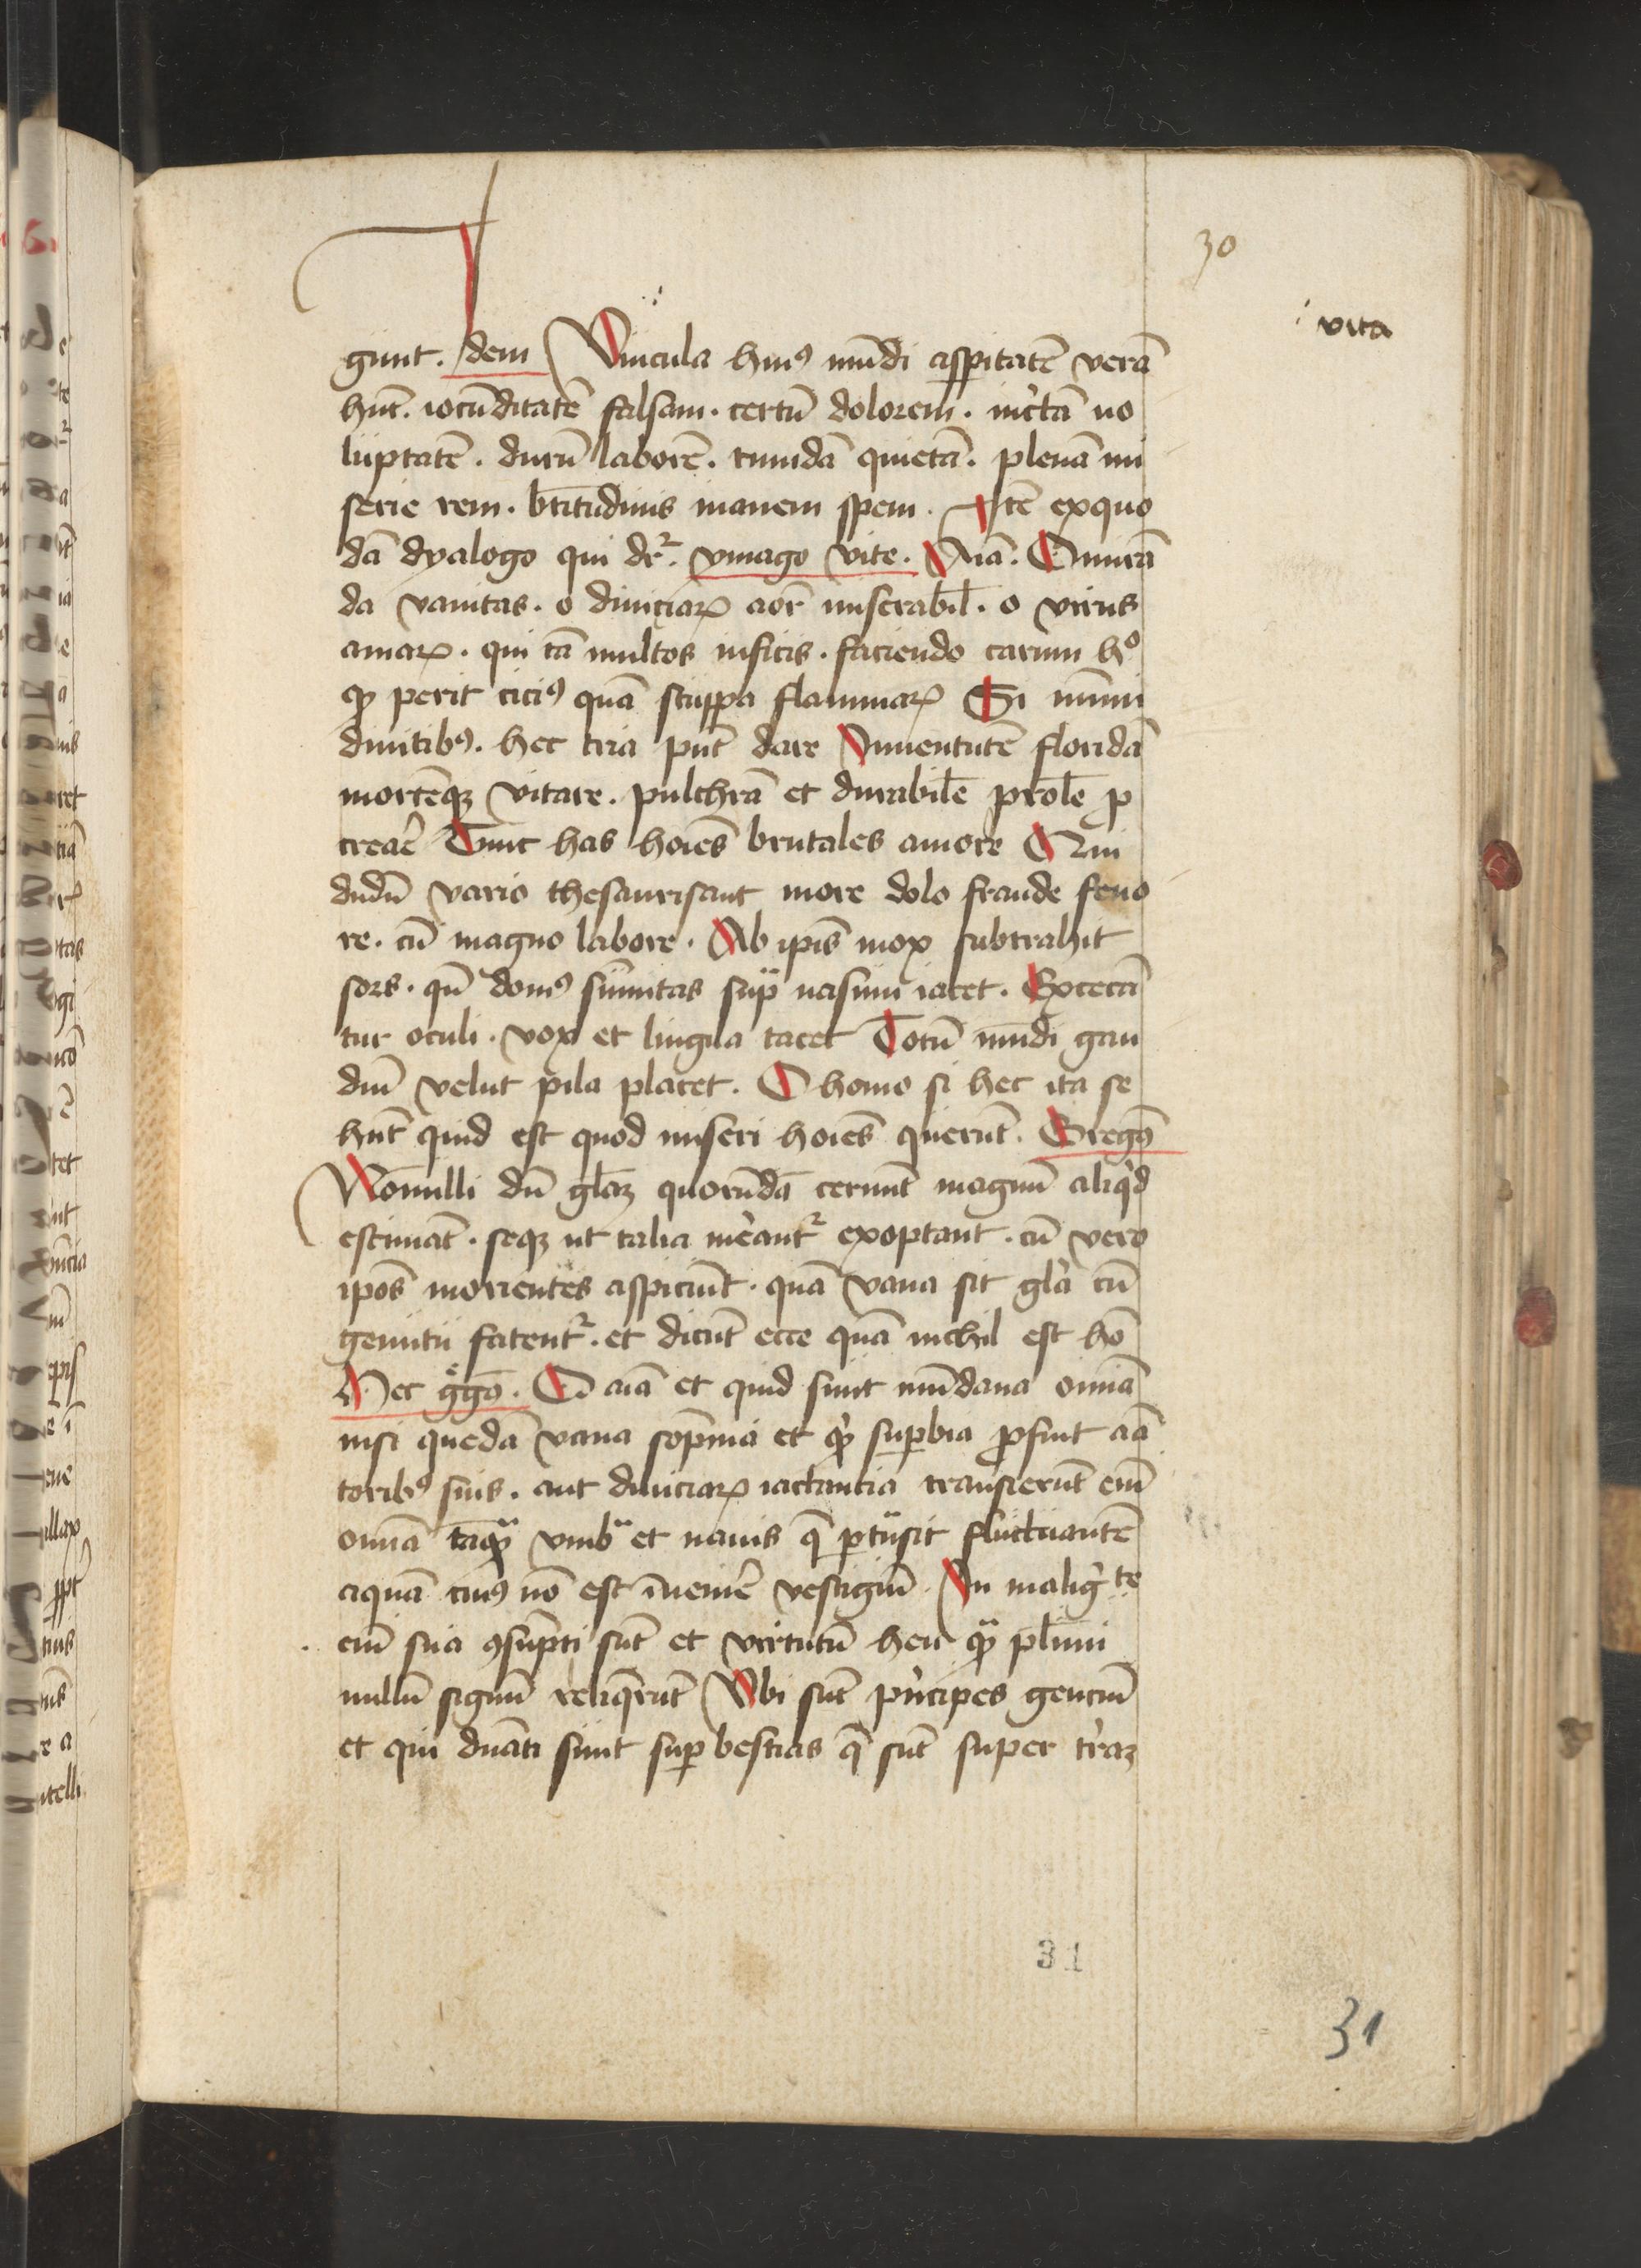 30
vita
gunt. Idem Vincula hui⁹ mūdi asp̄itatē verā
hn̄t. iocūditatē falsam. certū dolorem. incˀtā uo
luptatē. durū laborē. timidā quietā. plenā mi
serie rem. bt̄itudinis inanem spem. Itē ex quo
dā dyalogo qui dr̄. ymago vite. Aīa. O mirā
da vanitas. o diuiciaꝝ aor̄ miserabil̄. o virus
amaꝝ. qui tā multos inficis. faciendo carum hᵒ
qđ perit citi⁹ quā stuppa flammaꝝ Si mīmi
diuitib⁹. hec tria pn̄t dare Iuuentutē floridā
mortēqꝫ vitare. pulchrā et durabilē prolē ꝓ
creaē Tunc has hoīes brutales amore Qui
dudū vario thesaurisant more dolo fraude feno
re. cū magno labore. Ab ip̄is mox subtrahit
sors. qn̄ dom⁹ sūmitas sup̄ nasum iacet. Excecā
tur oculi. vox et lingua tacet Totū mūdi gau
diū velut pila placet. O homo si hec ita se
hn̄t quid est quod miseri hoīes querūt. Greg⁹
Nōnulli dū gl̄aꝫ quorūdā cernūt magnū aliqͥd
estimāt. seqꝫ ut talia mˀeantᵣ exoptant. cū vero
ip̄os morientes aspiciūt. quā vana sit gl̄a cū
gemitu fatentᵣ. et dicūt ecce quā nichil est hō
Hec gͤgō. O aīa et quid sunt mūdana om̄ia
nisi quedā vana sōpnia et qͥd sup̄bia ꝓfuit aā
torib⁹ suis. aut diuiciaꝝ iactantia transierūt em̄
om̄ia tāqᵃ̄ vmbᵃ et nauis q̄ p̄tͣnsit fluctuantē
aquā cui⁹ nō est īuenir̄ vestigiū. In maligͥte
em̄ sua ꝯsūpti sūt et virtutū heu qᵃ̄ plimi
nullū signū reliq̄rūt Vbi sūt pͥncipes genciū
et qui dn̄ati sunt sup̄ bestias q̄ sūt super tˀraꝫ
31
31